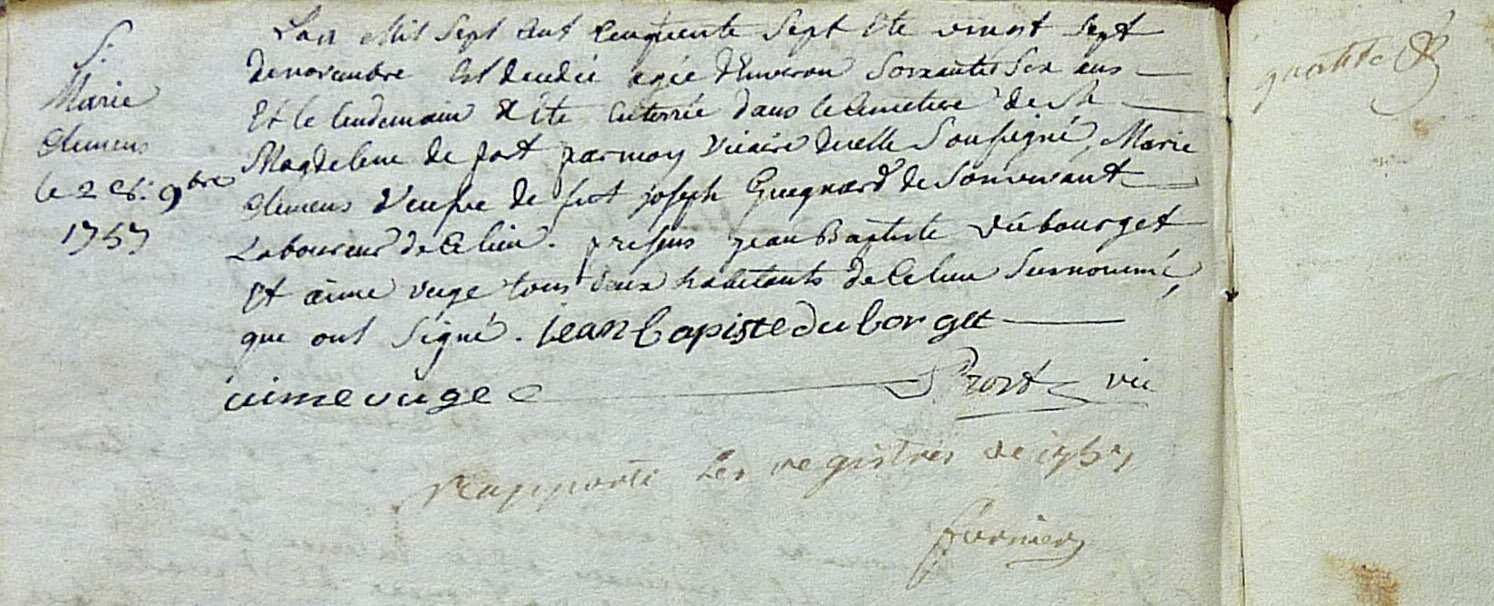 S.
Marie
Clemens
le 28. 9bre
1757
Lan Mil Sept Cent Cinquente Sept & le vingt Sept
de novembre Est decedée agée d'Environ Soixante Six ans
Et le lendemain a été Enterrée dans le Cimetiere de Ste
Magdeleine de fort par moy Vicaire d'icelle Soussigné, Marie
Clemens Veufve de fut joseph Guegnard de Son vivant
Laboureur de Ce lieu. presens jean Baptiste Dubourget
Et aimé vuge tous deux habitants de Ce lieu Surnommé,
que ont Signé. jean bapiste du borget
aime vuge
Prost vic
Rapporté Les registres de 1757
fournier